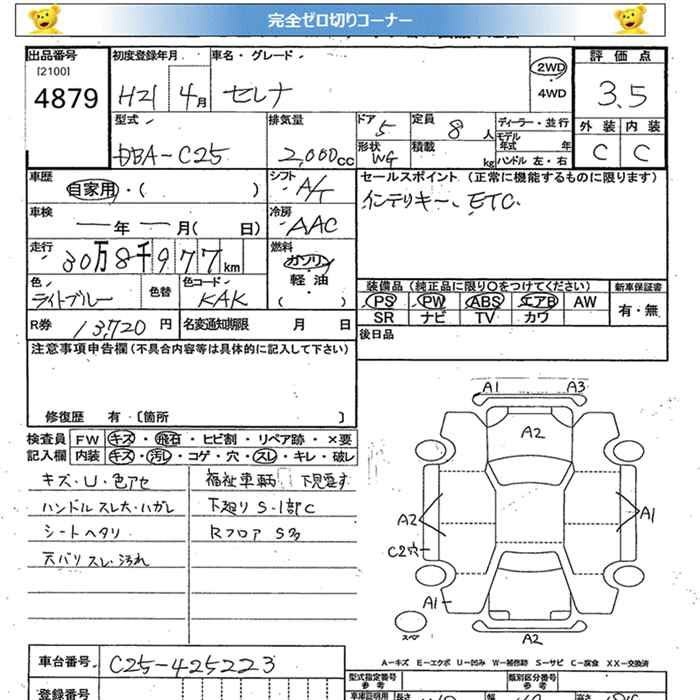 完全ゼロ切りコーナー
出品番号
[2100]
4879
初度登録年月
H21 4月
車名・グレード
セレナ
2WD
4WD
評価点
3.5
外装 内装
C C
型式
DBA-C25
排気量
2,000cc
ドア 5
形状 WG
定員 8 人
積載 kg
ディーラー・並行
モデル年式 年
ハンドル 左・右
車歴
自家用・( )
シフト
A/T
車検
年 月( 日)
冷房
AAC
走行
30万8千977km
燃料
ガソリン
軽油
( )
色
ライトブルー
色替
色コード
KAK
R券 13,720円
名変通知期限 月 日
セールスポイント (正常に機能するものに限ります)
インテリキー、ETC
装備品(純正品に限り○をつけてください)
新車保証書
PS PW ABS エアB AW
有・無
SR ナビ TV カワ
後日品
注意事項申告欄(不具合内容等は具体的に記入して下さい)
修復歴 有 〔箇所 〕
検査員 FW キズ・飛石・ヒビ割・リペア跡・×要
記入欄 内装 キズ・汚レ・コゲ・穴・スレ・キレ・破レ
キズ・U・色アセ
ハンドルスレ大・ハガレ
シートヘタリ
天バリスレ・汚れ
福祉車輌 下見要す
下廻り S・1部C
Rフロア S多
A1 A3
A2
A2 A1
C2穴
A1
スペア
A2
A-キズ E-エクボ U-凹み W-補修跡 S-サビ C-腐食 XX-交換済
車台番号 C25-425223
登録番号
型式指定番号
類別区分番号
参考
車庫証明用
長さ
幅
高さ